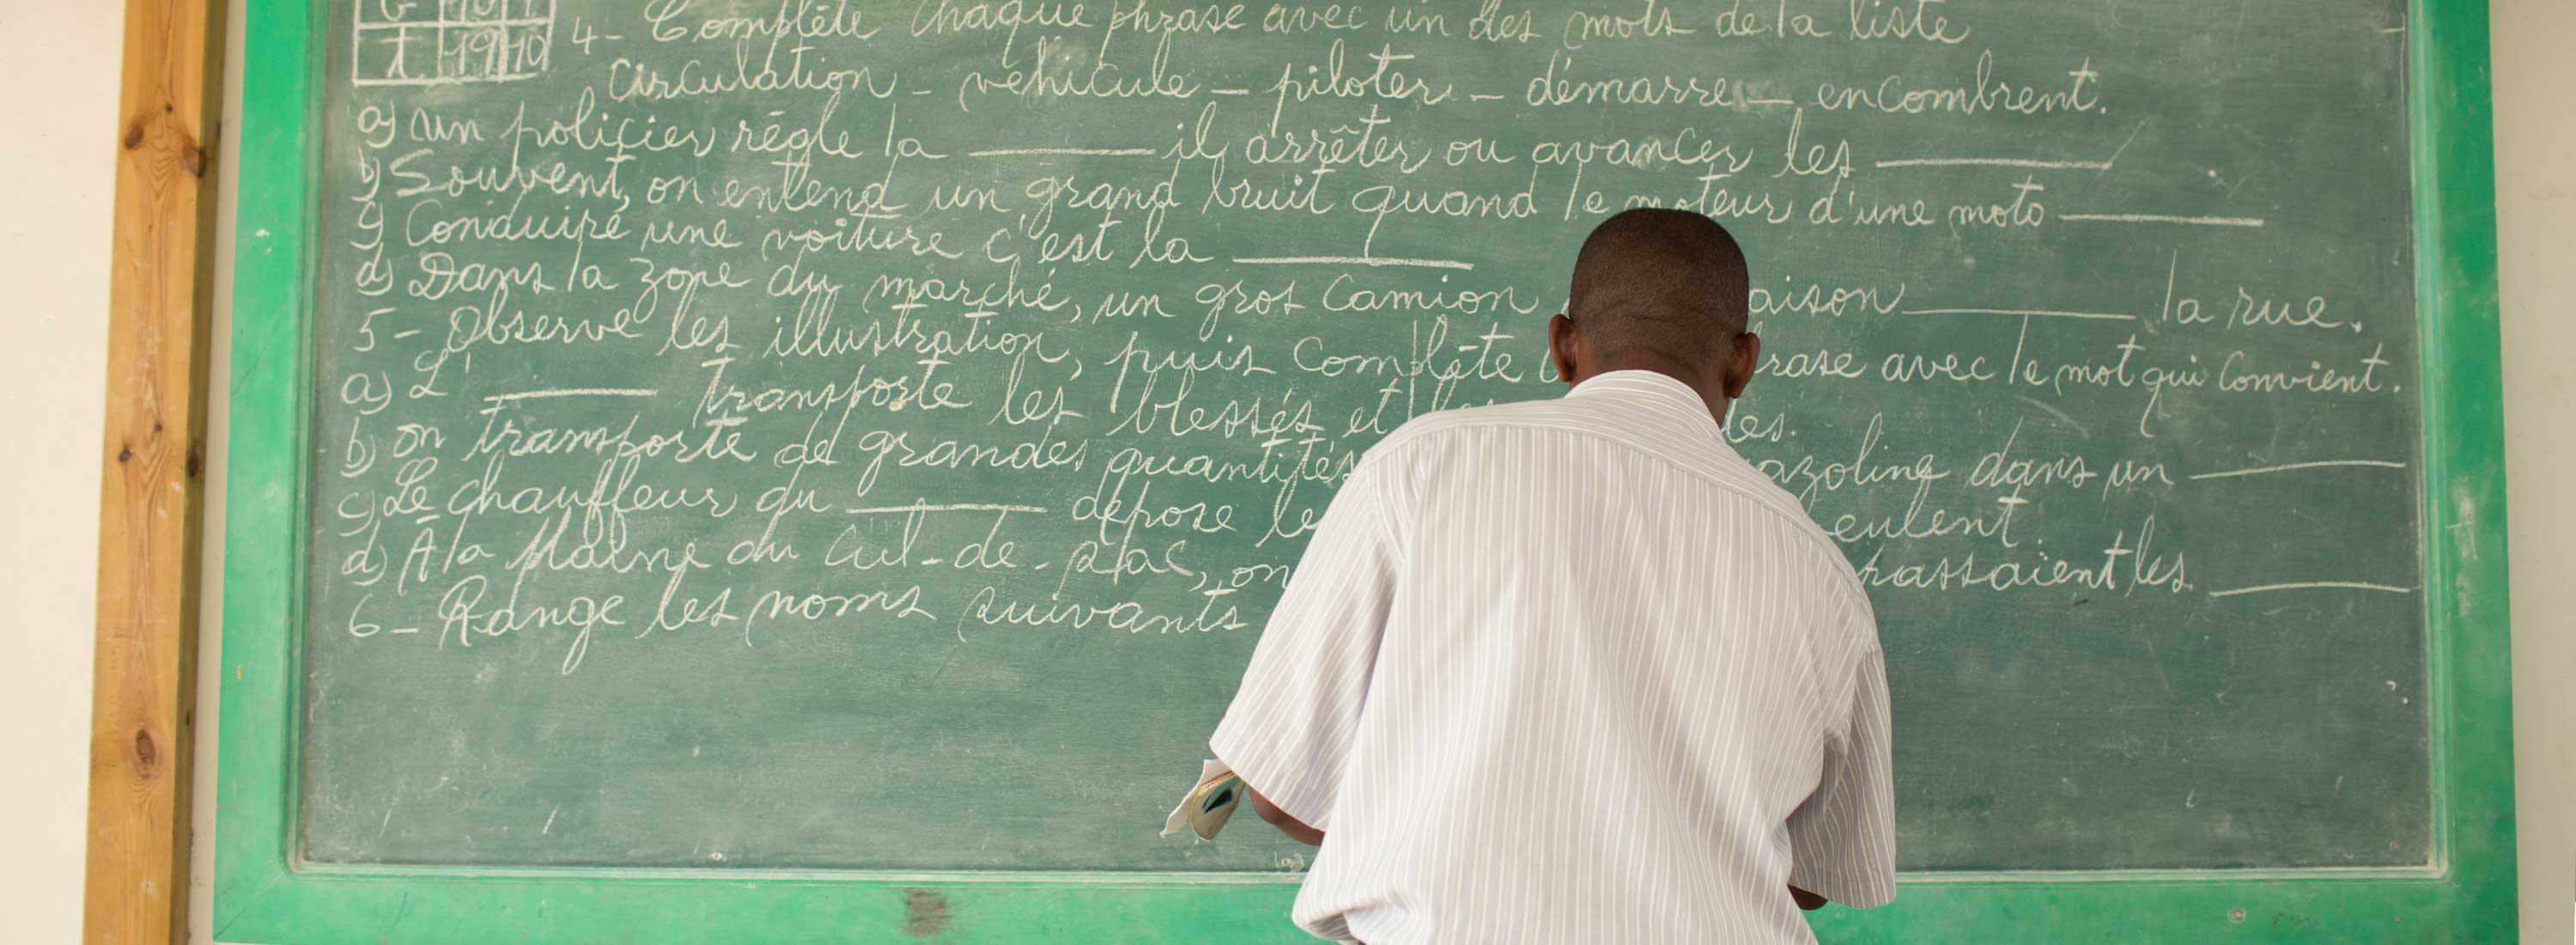 G 10 9
T 19 10
4- Complète chaque phrase avec un des mots de la liste
circulation - véhicule - piloter - démarre - encombrent.
a) un policier règle la ______ il arrêter ou avancer les ______
b) Souvent, on entend un grand bruit quand le moteur d'une moto ______
c) Conduire une voiture c'est la ______
d) Dans la zone du marché, un gros camion aison ______ la rue.
5- Observe les illustration, puis complète rase avec le mot qui convient.
a) L' ______ transporte les blessés et les les.
b) on transporte de grandes quantités azoline dans un ______
c) Le chauffeur du ______ dépose le eulent
d) A la plaine du cul-de-sac, on passaient les ______
6- Range les noms suivants